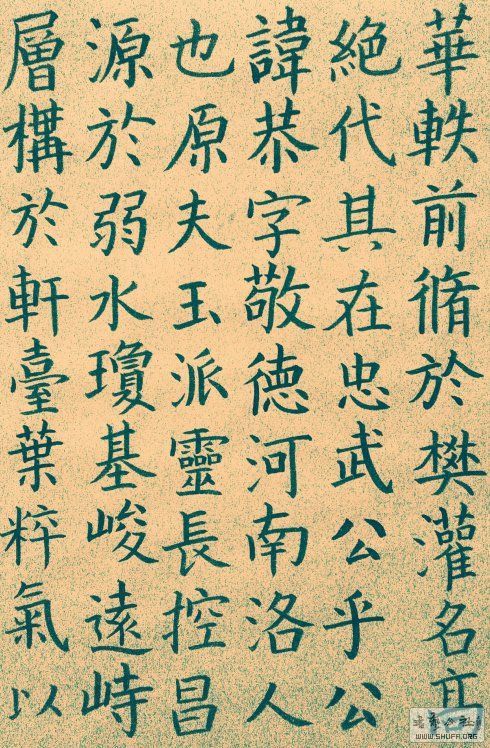 華軼前脩於樊灌名
絕代其在忠武公乎公
諱恭字敬德河南洛人
也原夫玉派靈長控昌
源於弱水瓊基峻遠峙
層構於軒臺葉粹氣以
WWW.SHUFA.ORG